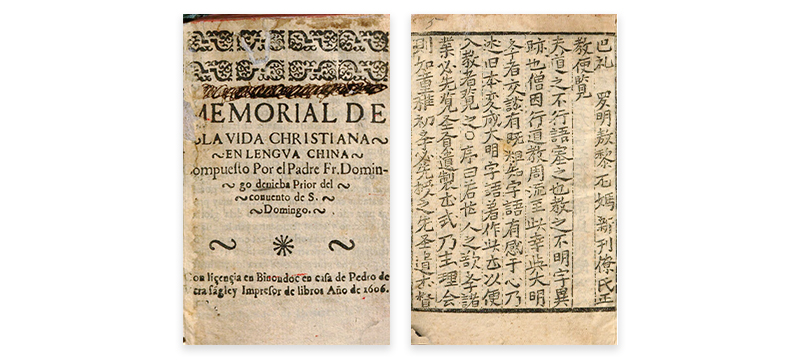 MEMORIAL DE
LA VIDA CHRISTIANA
EN LENGVA CHINA
Compuesto Por el Padre Fr. Domin-
go denieba Prior del
conuento de S.
Domingo.
Con licençia en Binondoc en casa de Pedro de
Vera sãgley Impresor de libros Año de 1606.
巴礼 罗明敖黎尼媽新刊僚氏正
教便覽
夫道之不行語塞之也教之不明字異
跡也僧因行道教周流至此幸與大明
學者交談有既粗知字語有感于心乃
述旧本变成大明字語著作此以便
入教者覽之○序曰若世人之欲學諸
業必先乃主理会
則如童稚初學必先授之先圣道